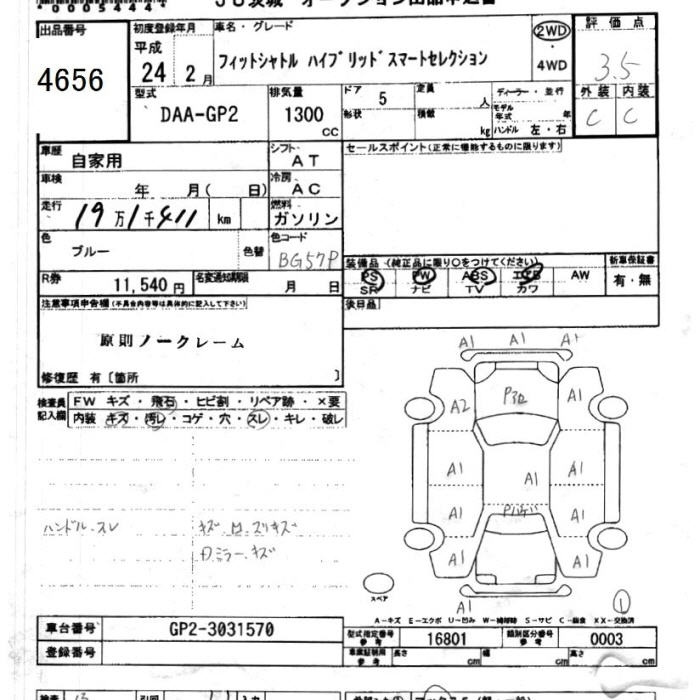 *0005444*
オークション出品申込書
出品番号
4656
初度登録年月
平成
24 2月
車名・グレード
フィットシャトル ハイブリッドスマートセレクション
2WD
・
4WD
評価点
3.5
外装 内装
C C
型式
DAA-GP2
排気量
1300
CC
ドア 5
形状
定員 人
積載 kg
ディーラー・並行
モデル年式 年
ハンドル 左・右
車歴
自家用
シフト
AT
セールスポイント(正常に機能するものに限ります)
車検 年 月( 日)
冷房
AC
走行
19万1千411 km
燃料
ガソリン
色
ブルー
色替
色コード
BG57P
装備品(純正品に限り○をつけてください)
PS PW ABS エアB AW
SR ナビ TV カワ
新車保証書
有・無
R券 11,540円
名変通知期限 月 日
後日品
注意事項申告欄(不具合内容等は具体的に記入して下さい)
原則ノークレーム
修復歴 有〔箇所 〕
検査員記入欄
FW キズ・飛石・ヒビ割・リペア跡・×要
内装 キズ・汚レ・コゲ・穴・スレ・キレ・破レ
ハンドル.スレ
A1 A1 A1
A2 A1
A1 A1 A1
A1 A1
A1 A1
A1
スペア
1
A-キズ E-エクボ U-凹み W-補修跡 S-サビ C-腐食 XX-交換済
車台番号 GP2-3031570
登録番号
型式指定番号参考 16801
類別区分番号参考 0003
車庫証明用参考
長さ cm 幅 cm 高さ cm